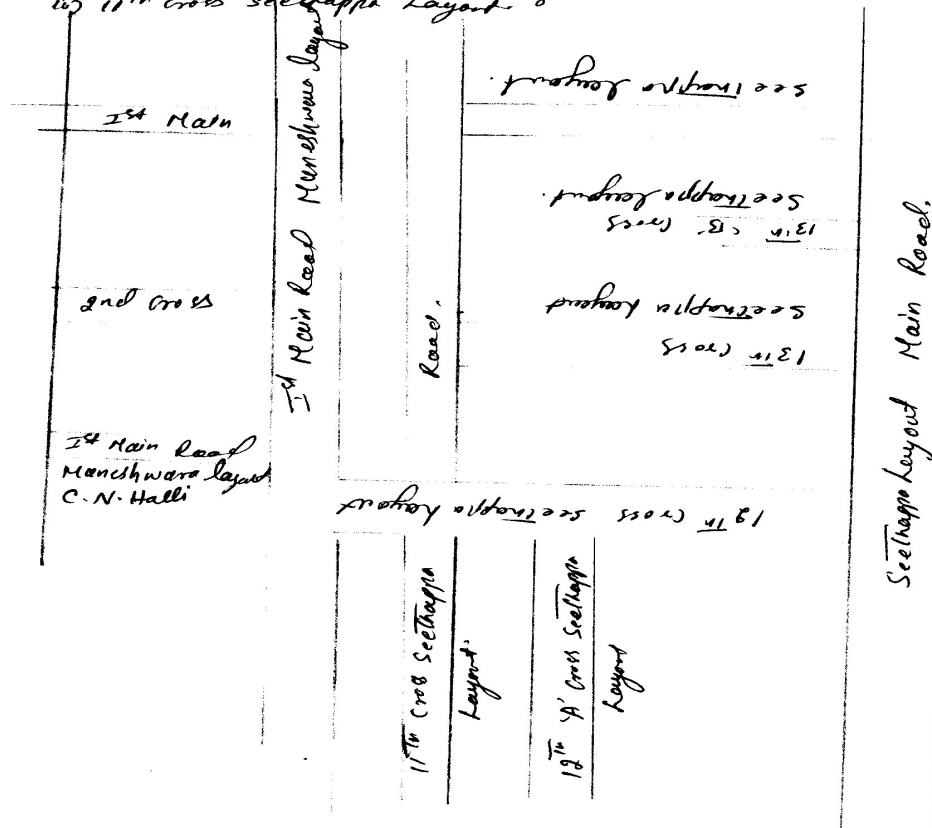 11th Cross Seethappa Layout.
Ist Main
2nd Cross
Ist Main Road
Maneshwara layout
C.N. Halli
Ist Main Road Maneshwara layout
Road.
Seethappa layout.
13th 'B' Cross
Seethappa layout.
13th Cross
Seethappa Layout
12th Cross Seethappa Layout
11th Cross Seethappa
Layout.
12th 'A' Cross Seethappa
Layout
Seethappa Layout Main Road.